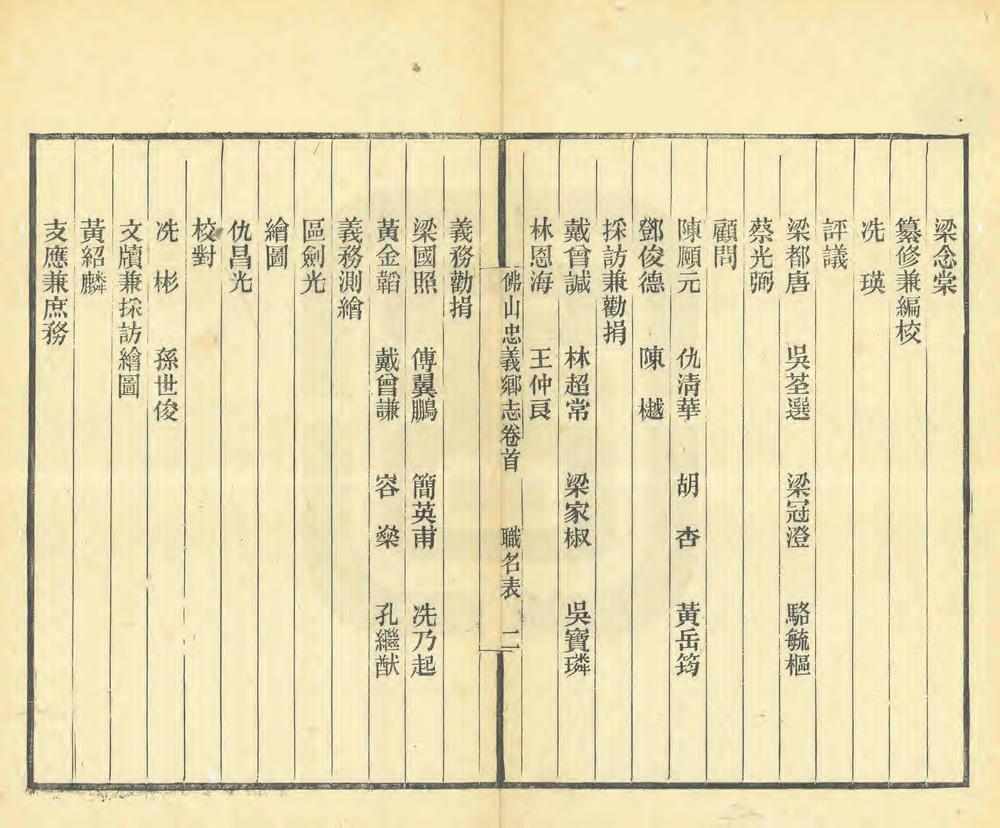 梁念棠
纂修兼編校
冼　瑛
評議
梁都唐　吳荃選　梁冠澄　駱毓樞
蔡光弼
顧問
陳願元　仇清華　胡　杏　黃岳筠
鄧俊德　陳　樾
採訪兼勸捐
戴曾誠　林超常　梁家椒　吳寶璘
林恩海　王仲良
佛山忠義鄉志卷首　職名表　二
義務勸捐
梁國照　傅翼鵬　簡英甫　冼乃起
黃金韜　戴曾謙　容　燊　孔繼猷
義務測繪
區劍光
繪圖
仇昌光
校對
冼　彬　孫世俊
文牘兼採訪繪圖
黃紹麟
支應兼庶務